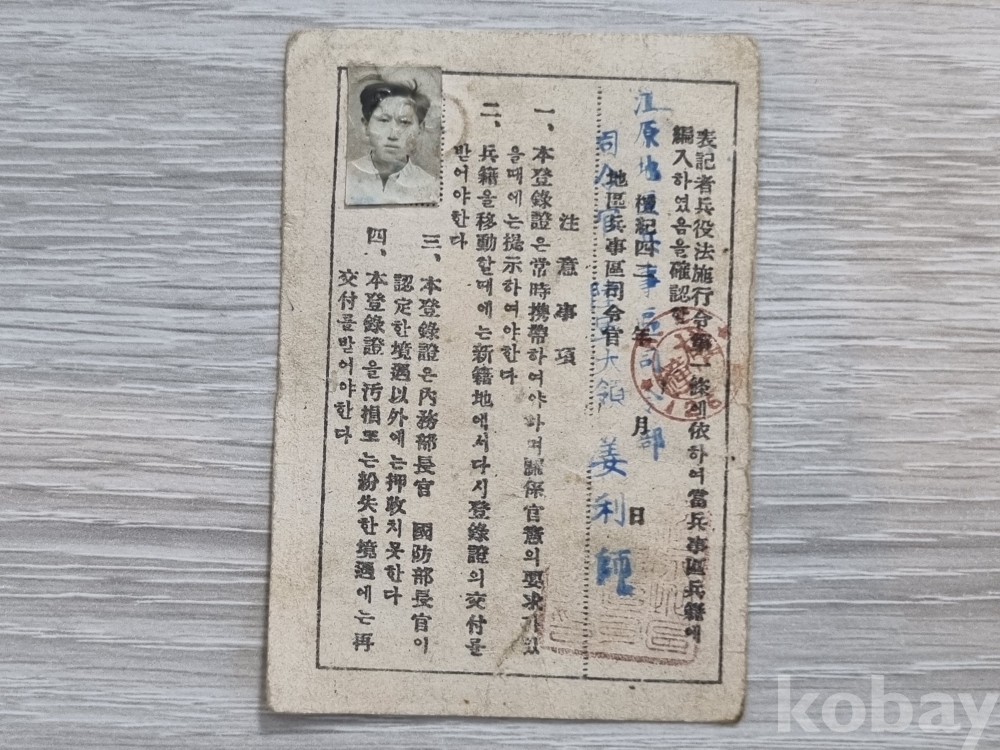 表記者兵役法施行令第一條에依하여當兵事區兵籍에
編入하였음을確認함
檀紀四二 年 月 日
江原地區兵事區司令部
地區兵事區司令官
司令官 陸軍大領 姜利師
注意事項
一、本登錄證은常時携帶하여야하며關係官憲의要求가있
을때에는提示하여야한다
二、兵籍을移動할때에는新籍地에서다시登錄證의交付를
받어야한다
三、本登錄證은內務部長官 國防部長官이
認定한境遇以外에는押收치못한다
四、本登錄證을汚損또는紛失한境遇에는再
交付를받어야한다
kobay